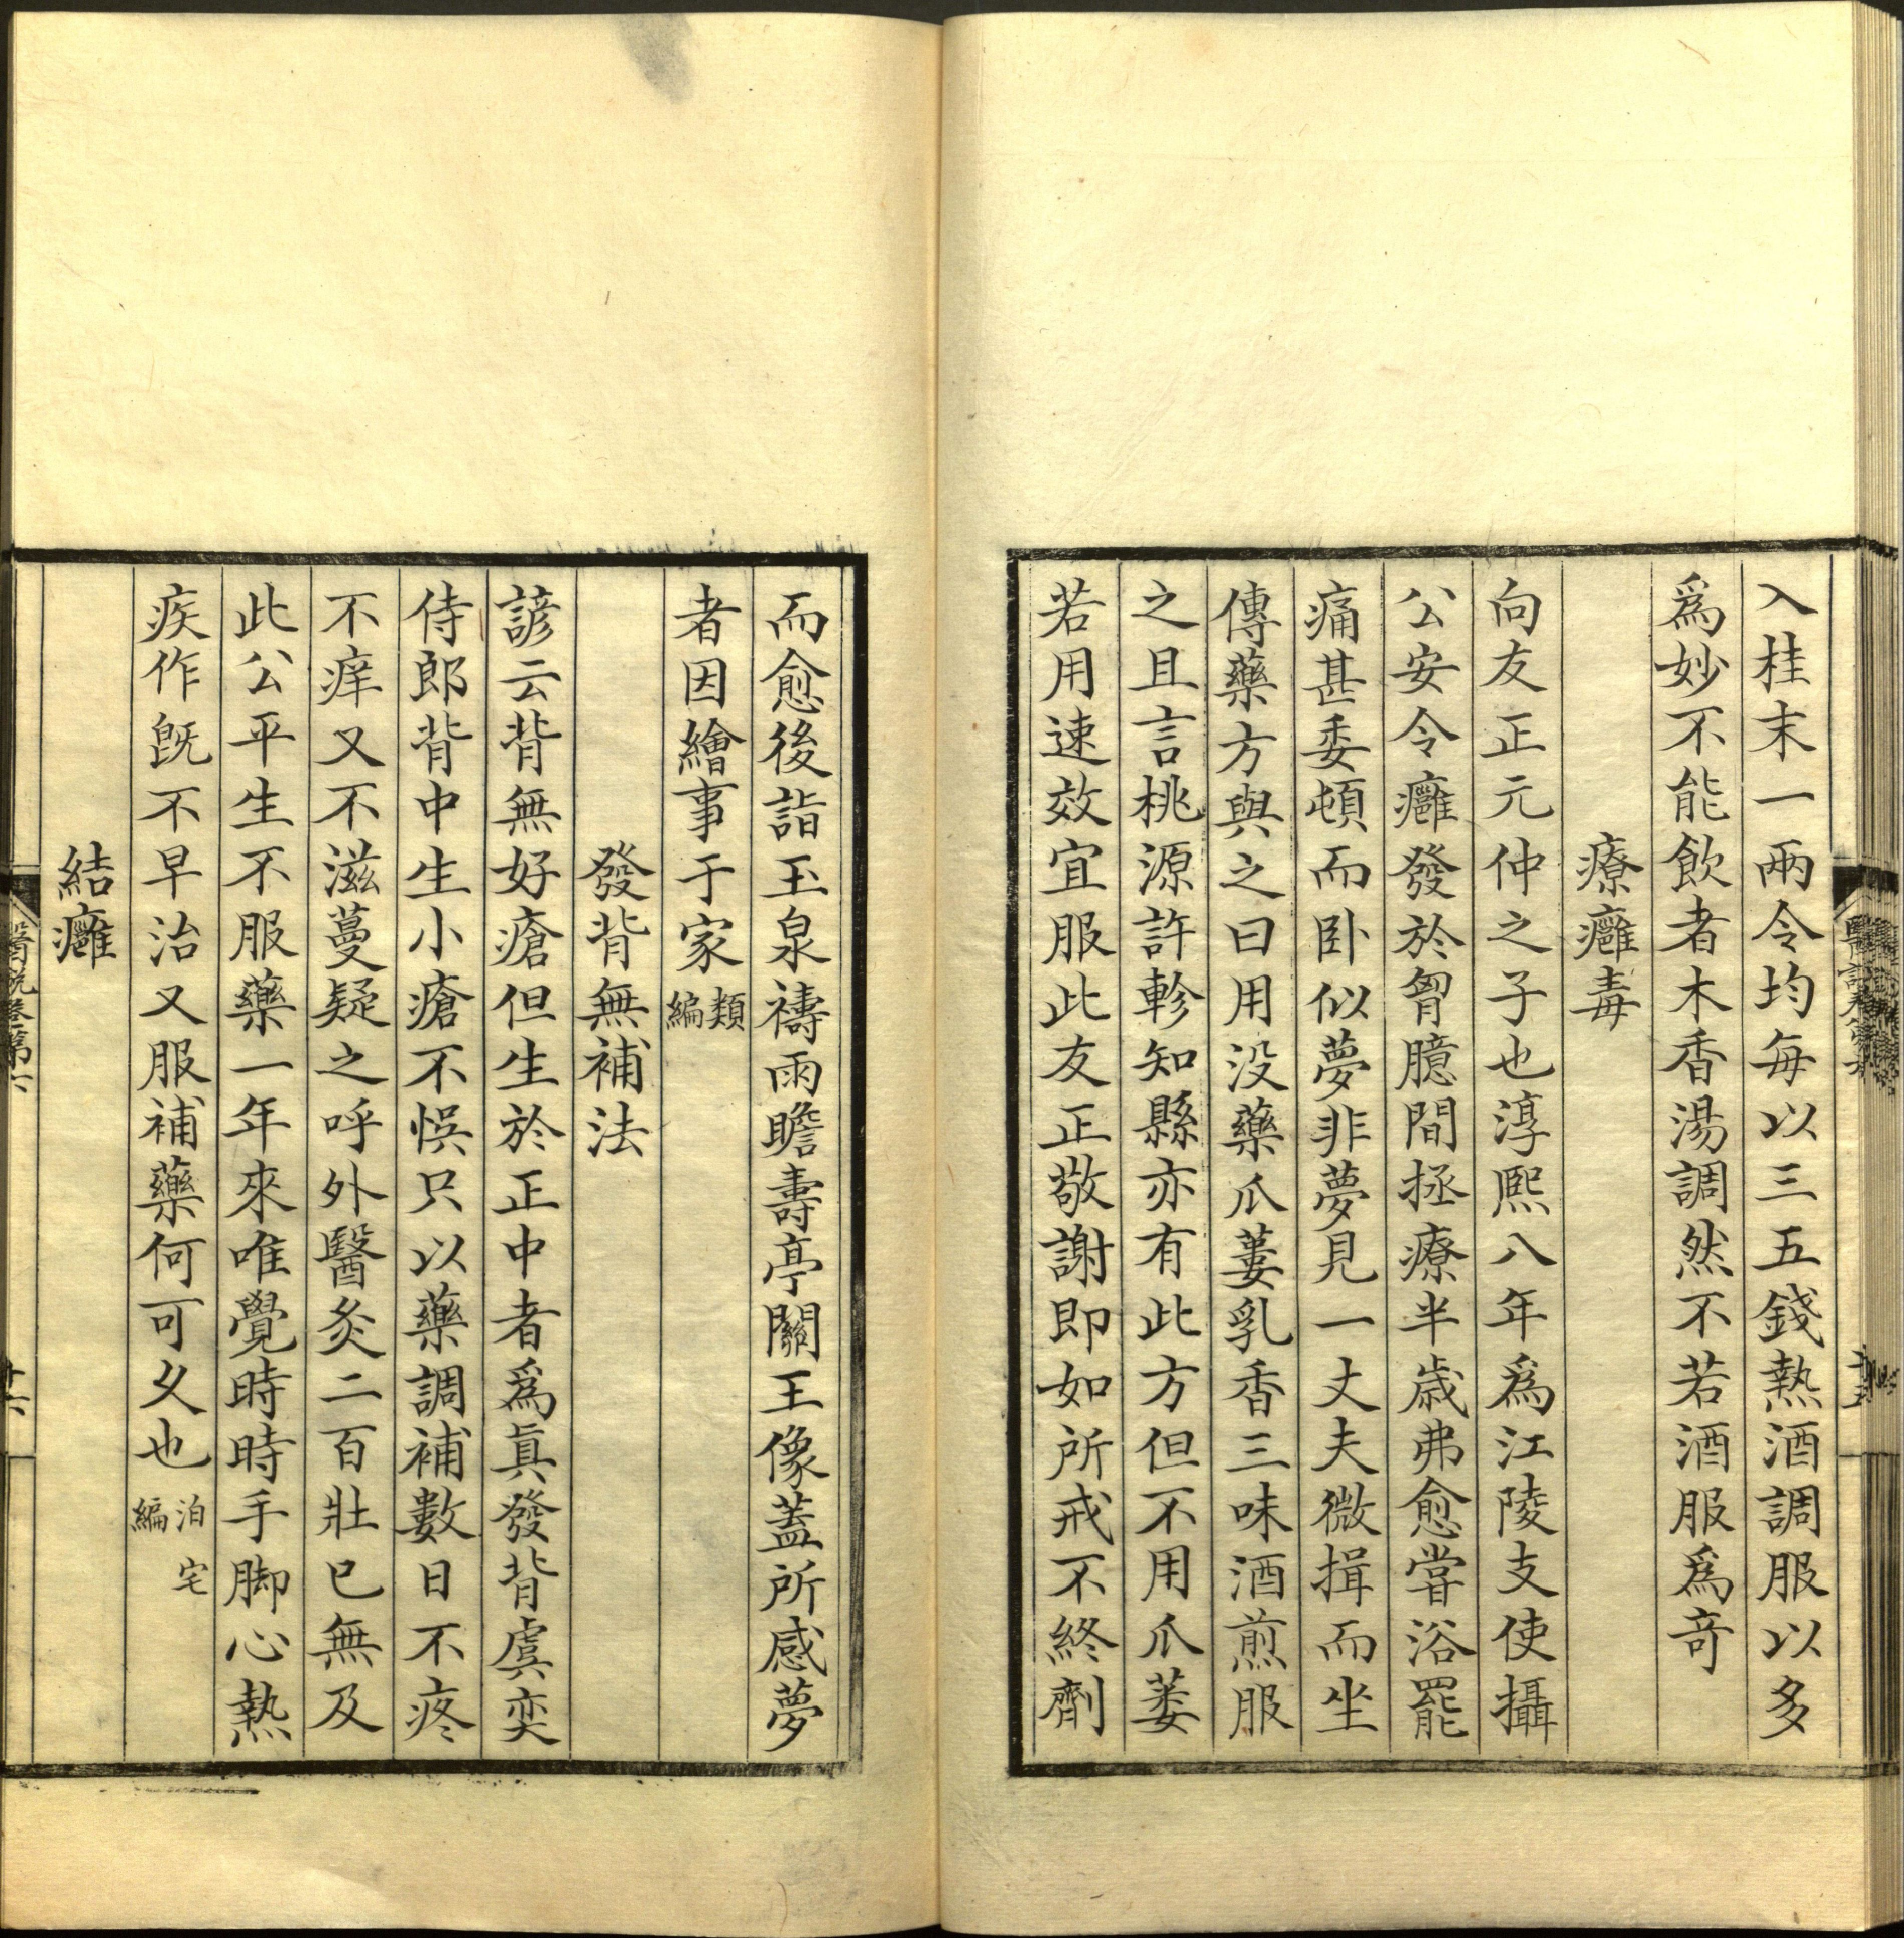 入桂末一兩令均每以三五錢熱酒調服以多
爲妙不能飲者木香湯調然不若酒服爲竒
療癰毒
向友正元仲之子也淳熙八年爲江陵支使攝
公安令癰發於胷臆間拯療半歲弗愈嘗浴罷
痛甚委頓而卧似夢非夢見一丈夫微揖而坐
傳藥方與之曰用没藥瓜蔞乳香三味酒煎服
之且言桃源許軫知縣亦有此方但不用瓜蔞
若用速效宜服此友正敬謝即如所戒不終劑
而愈後詣玉泉禱雨瞻壽亭關王像蓋所感夢
者因繪事于家類編
發背無補法
諺云背無好瘡但生於正中者爲眞發背虞奕
侍郎背中生小瘡不悞只以藥調補數日不疼
不痒又不滋蔓疑之呼外醫灸二百壯巳無及
此公平生不服藥一年來唯覺時時手脚心熱
疾作旣不早治又服補藥何可久也泊宅編
結癰
醫說卷第六
十六